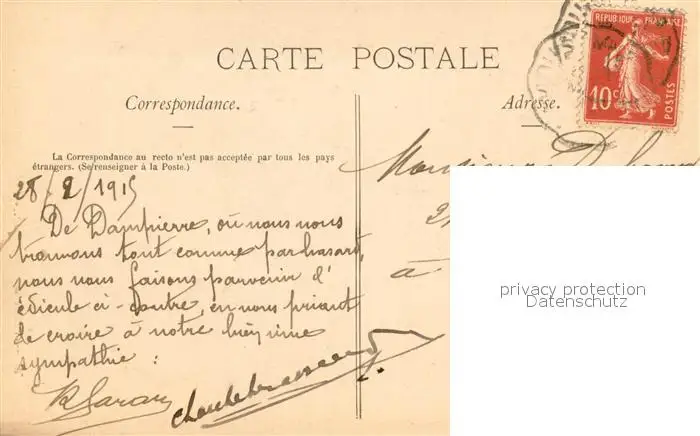 CARTE POSTALE
RÉPUBLIQUE FRANÇAISE
10c
POSTES
Correspondance.
Adresse.
La Correspondance au recto n'est pas acceptée par tous les pays
étrangers. (Se renseigner à la Poste.)
28/2/1915
De Dampierre, où nous nous
trouvons tout comme par hasard,
nous nous faisons parvenir l'
édicule ci-contre, en nous priant
de croire à notre bien
sympathie :
Monsieur
à
privacy protection
Datenschutz